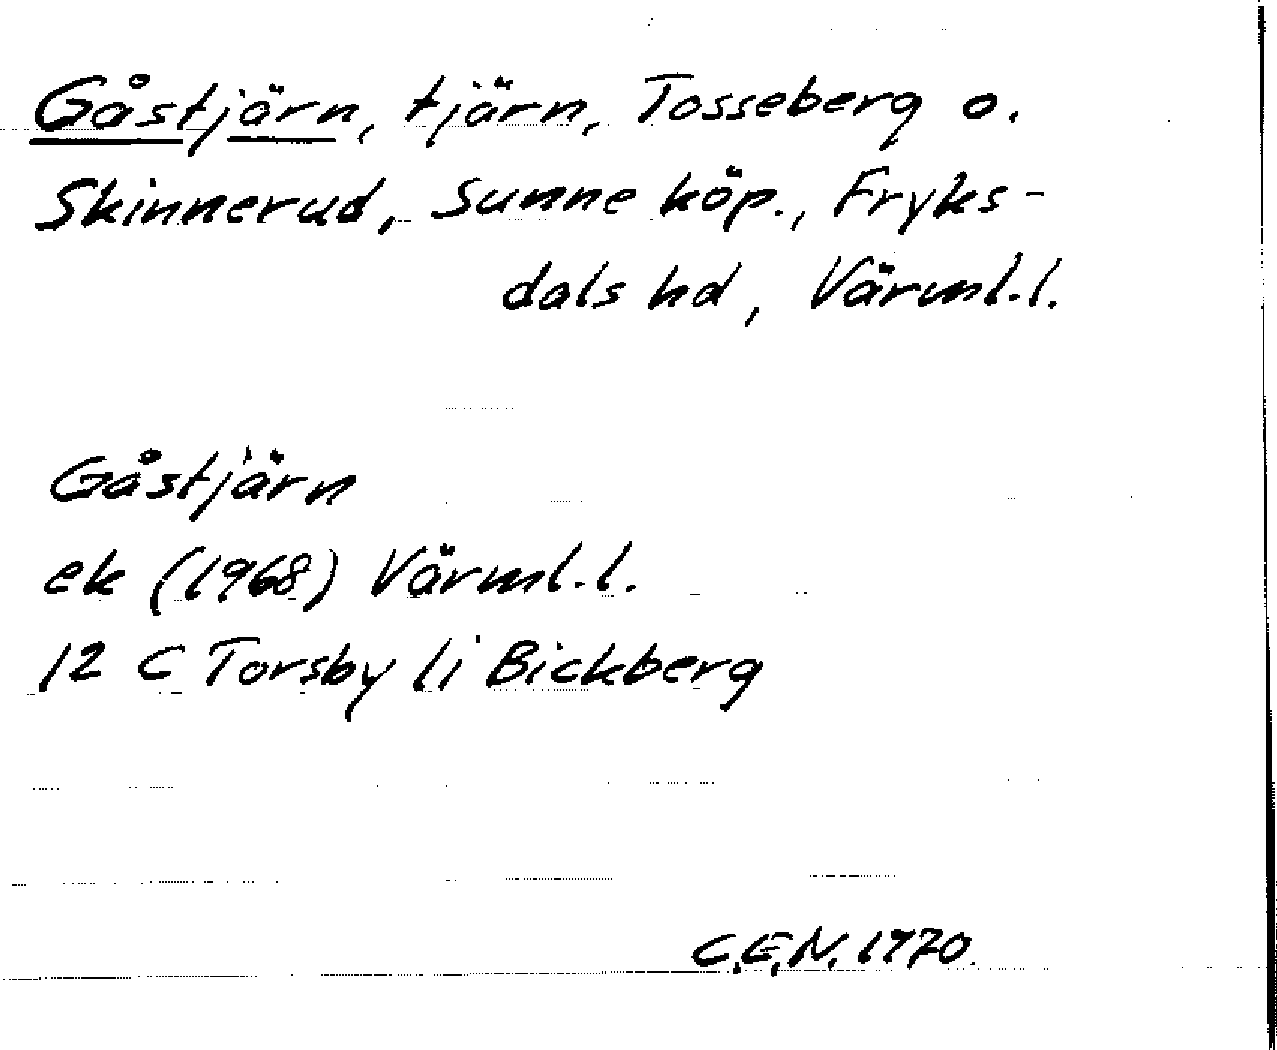 Gåstjärn, tjärn, Tosseberg o.
Skinnerud, Sunne köp., Fryks-
dals hd, Värml.l.
Gåstjärn
ek (1968) Värml.l.
12 C Torsby li Bickberg
C.E.N. 1970.